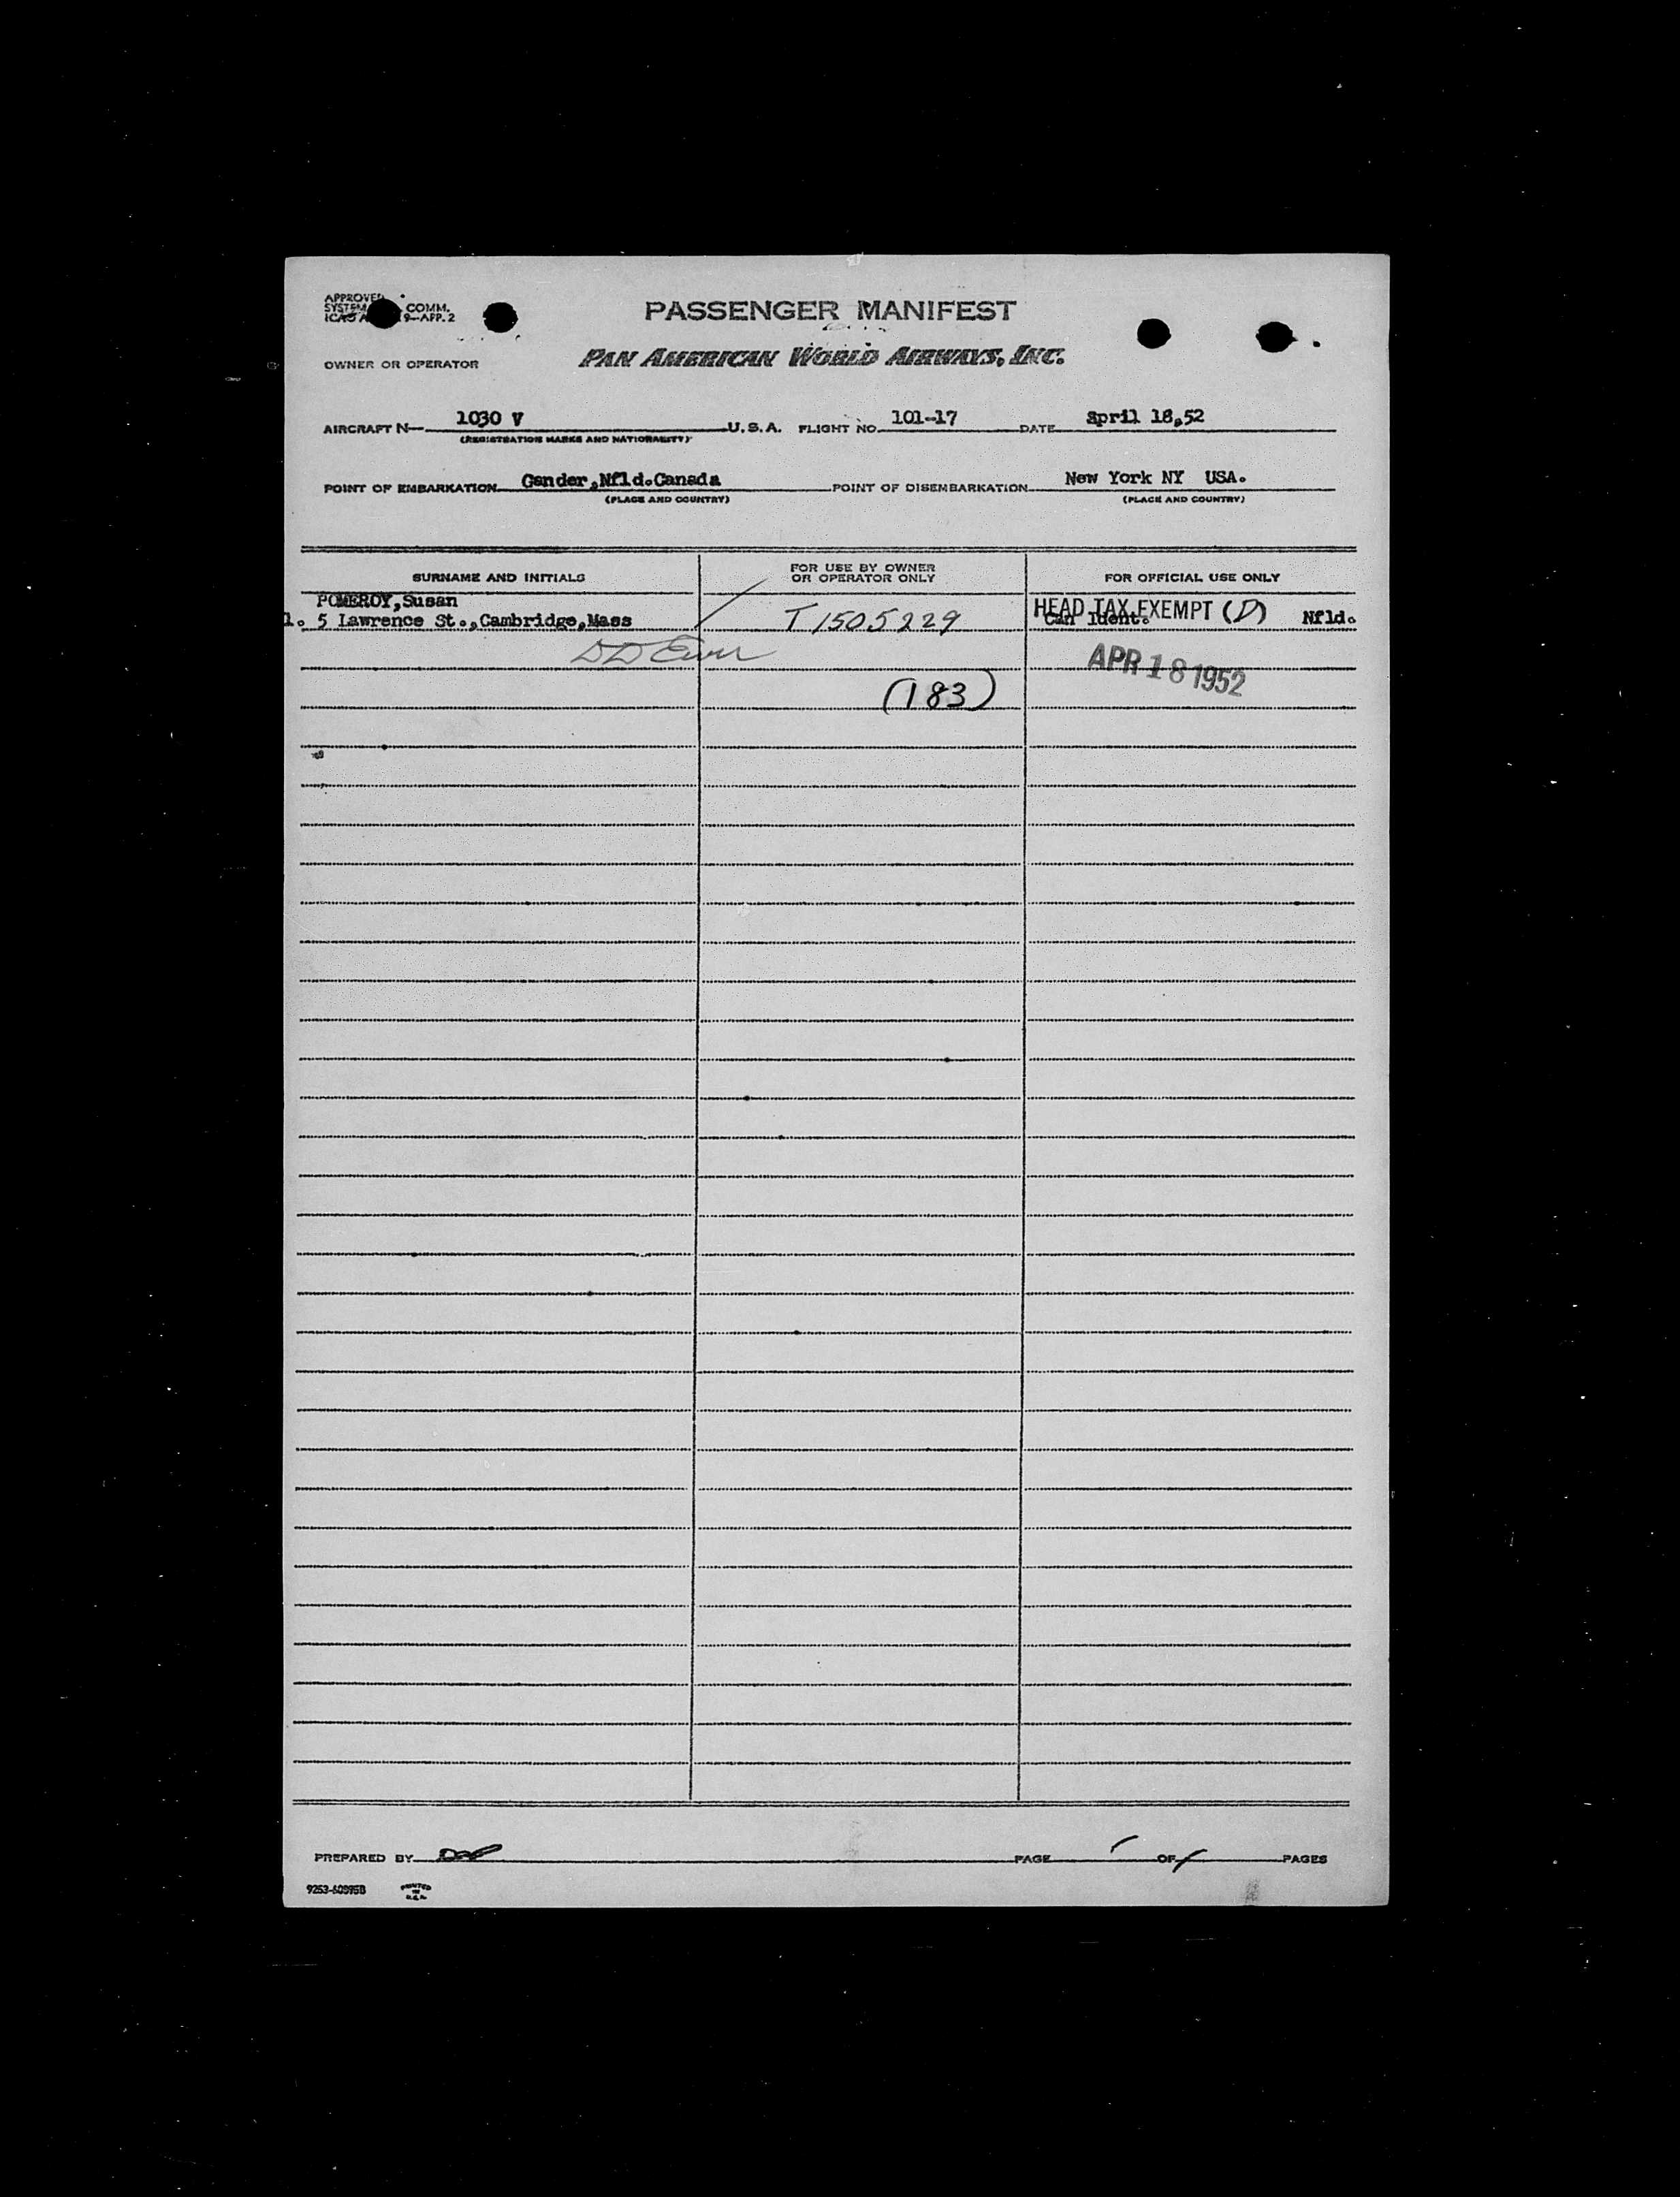 APPROVED
SYSTEM COMM.
ICAO A 9-APP. 2
PASSENGER MANIFEST
OWNER OR OPERATOR PAN AMERICAN WORLD AIRWAYS, INC.
AIRCRAFT N- 1030 V U.S.A. FLIGHT NO. 101-17 DATE april 18,52
(REGISTRATION MARKS AND NATIONALITY)
POINT OF EMBARKATION Gander,Nfld.Canada POINT OF DISEMBARKATION New York NY USA.
(PLACE AND COUNTRY) (PLACE AND COUNTRY)
SURNAME AND INITIALS FOR USE BY OWNER OR OPERATOR ONLY FOR OFFICIAL USE ONLY
POMEROY,Susan
1. 5 Lawrence St.,Cambridge,Mass T 1505229 HEAD TAX EXEMPT (D) Can Ident. Nfld.
APR 18 1952
(183)
PREPARED BY PAGE 1 OF 1 PAGES
9253-60995B PRINTED IN U.S.A.